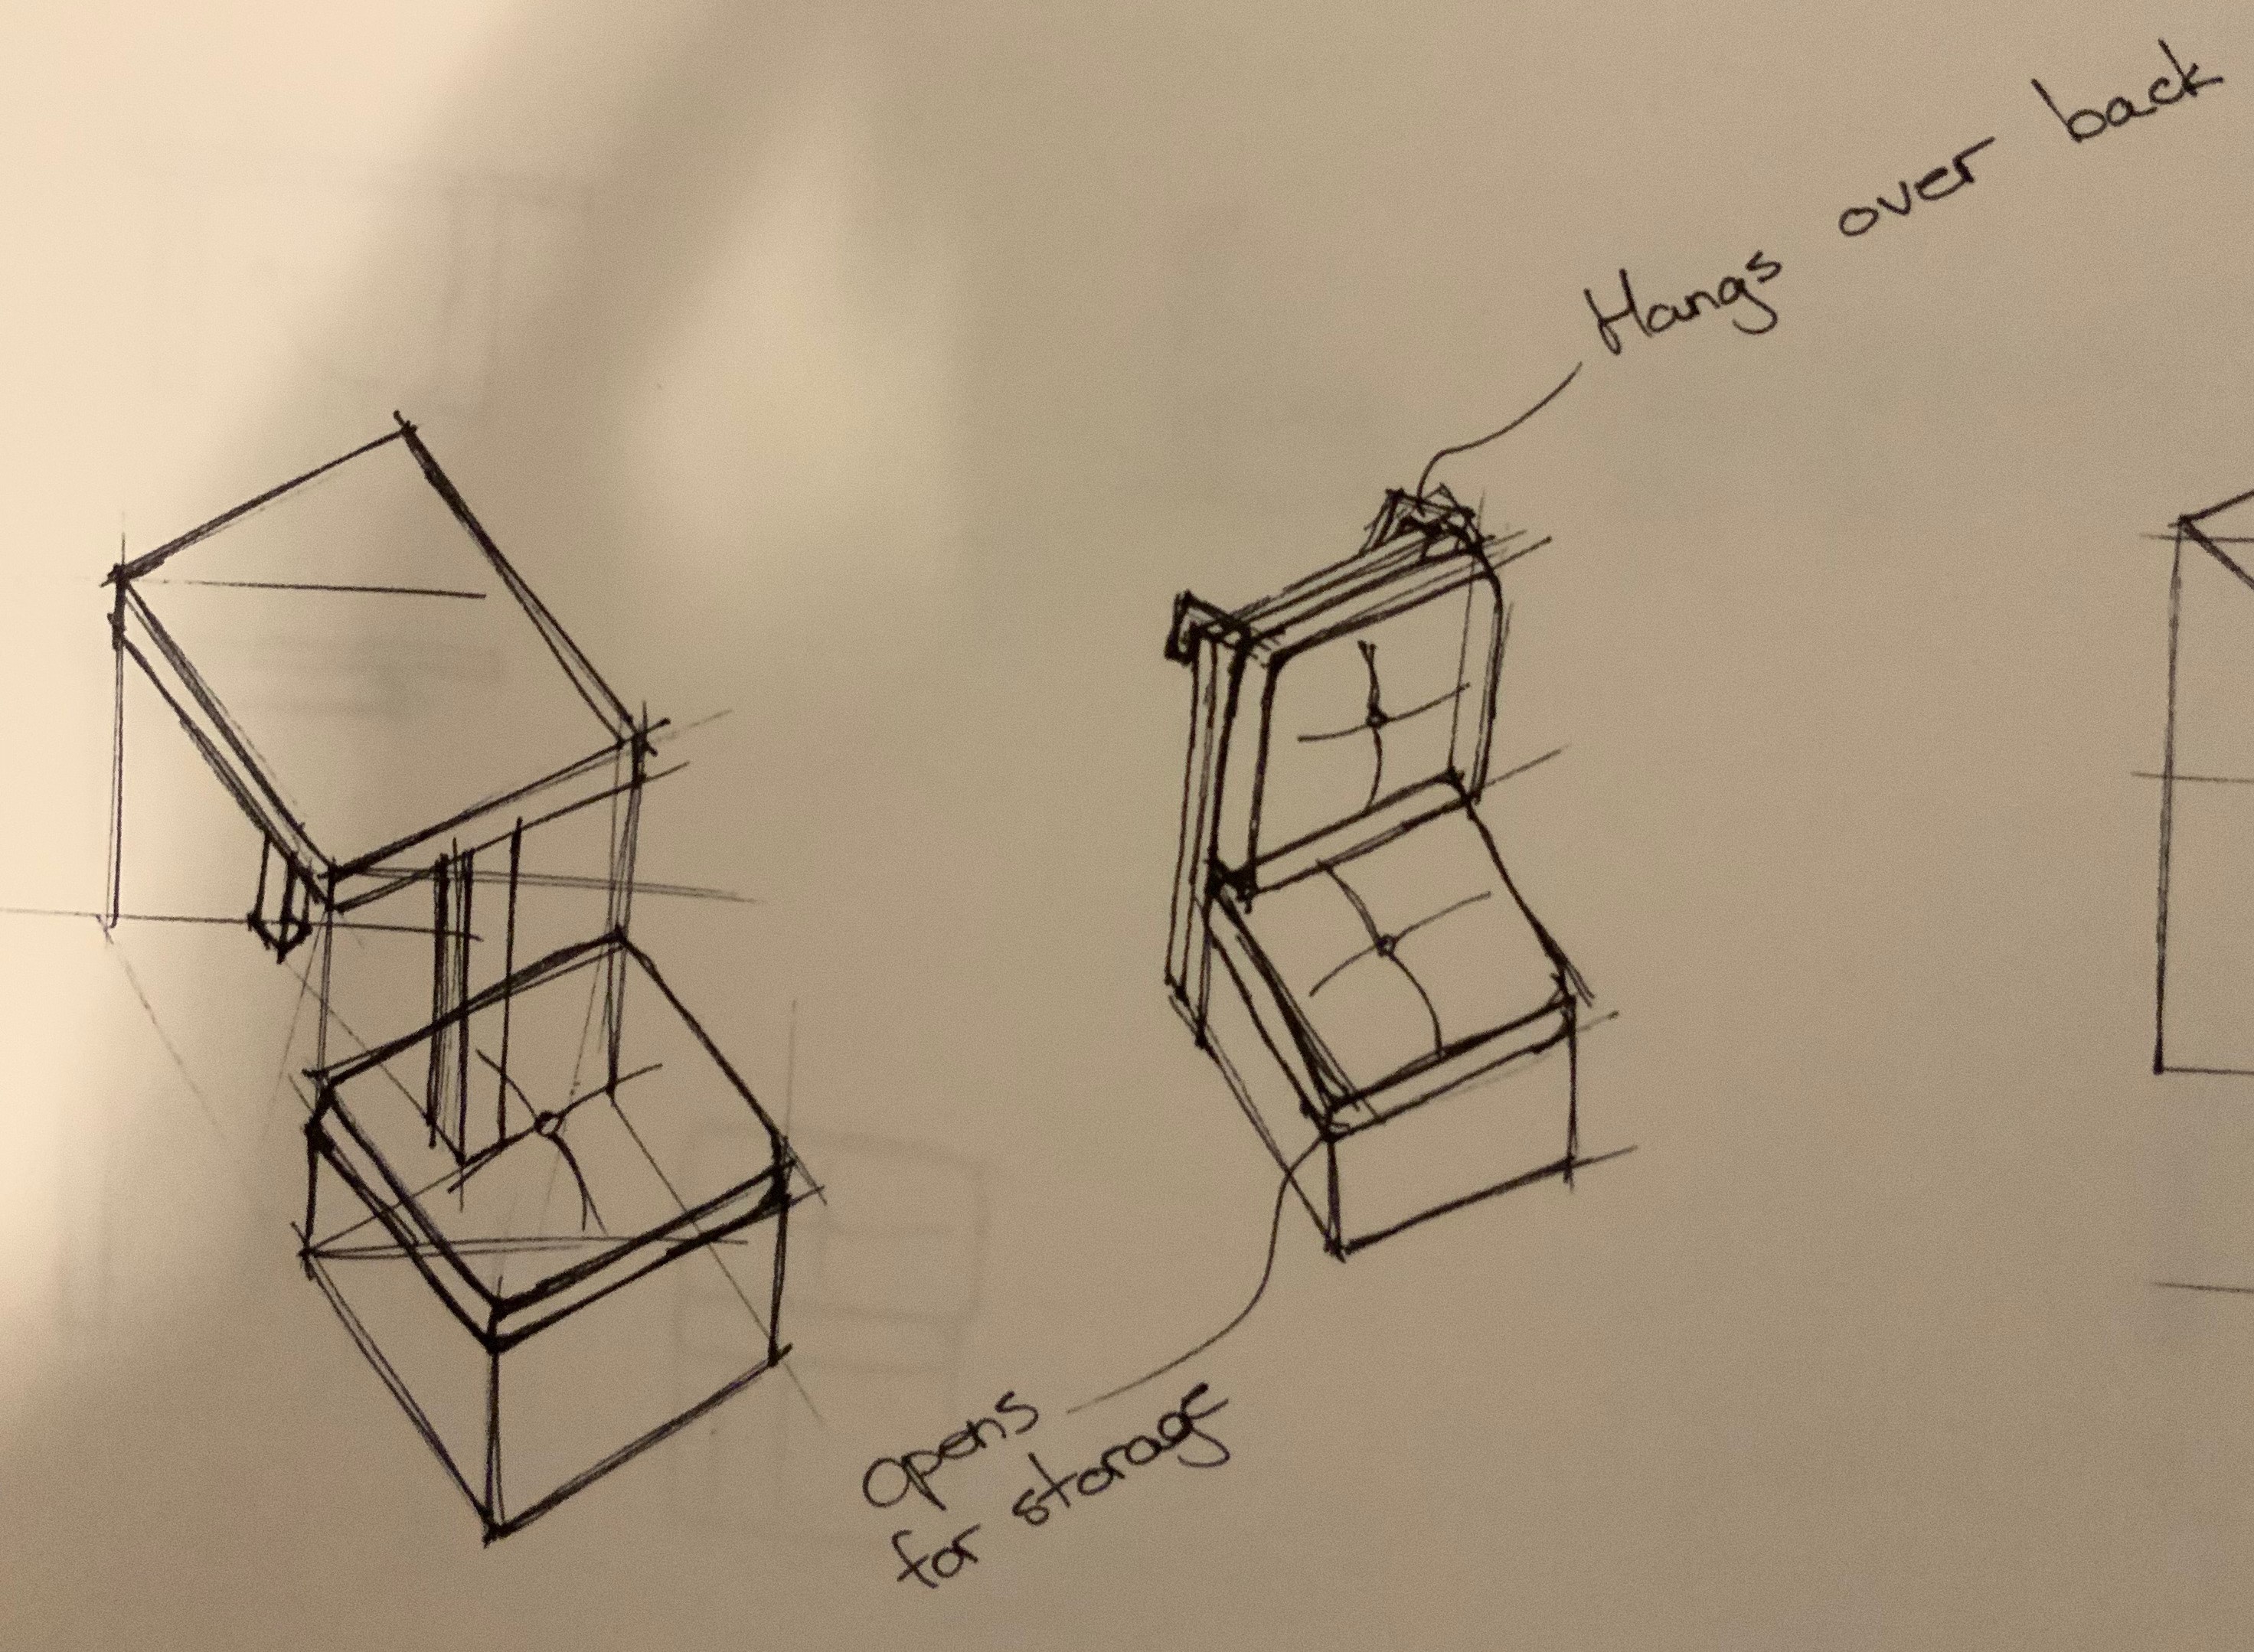 Hangs over back
opens
for storage